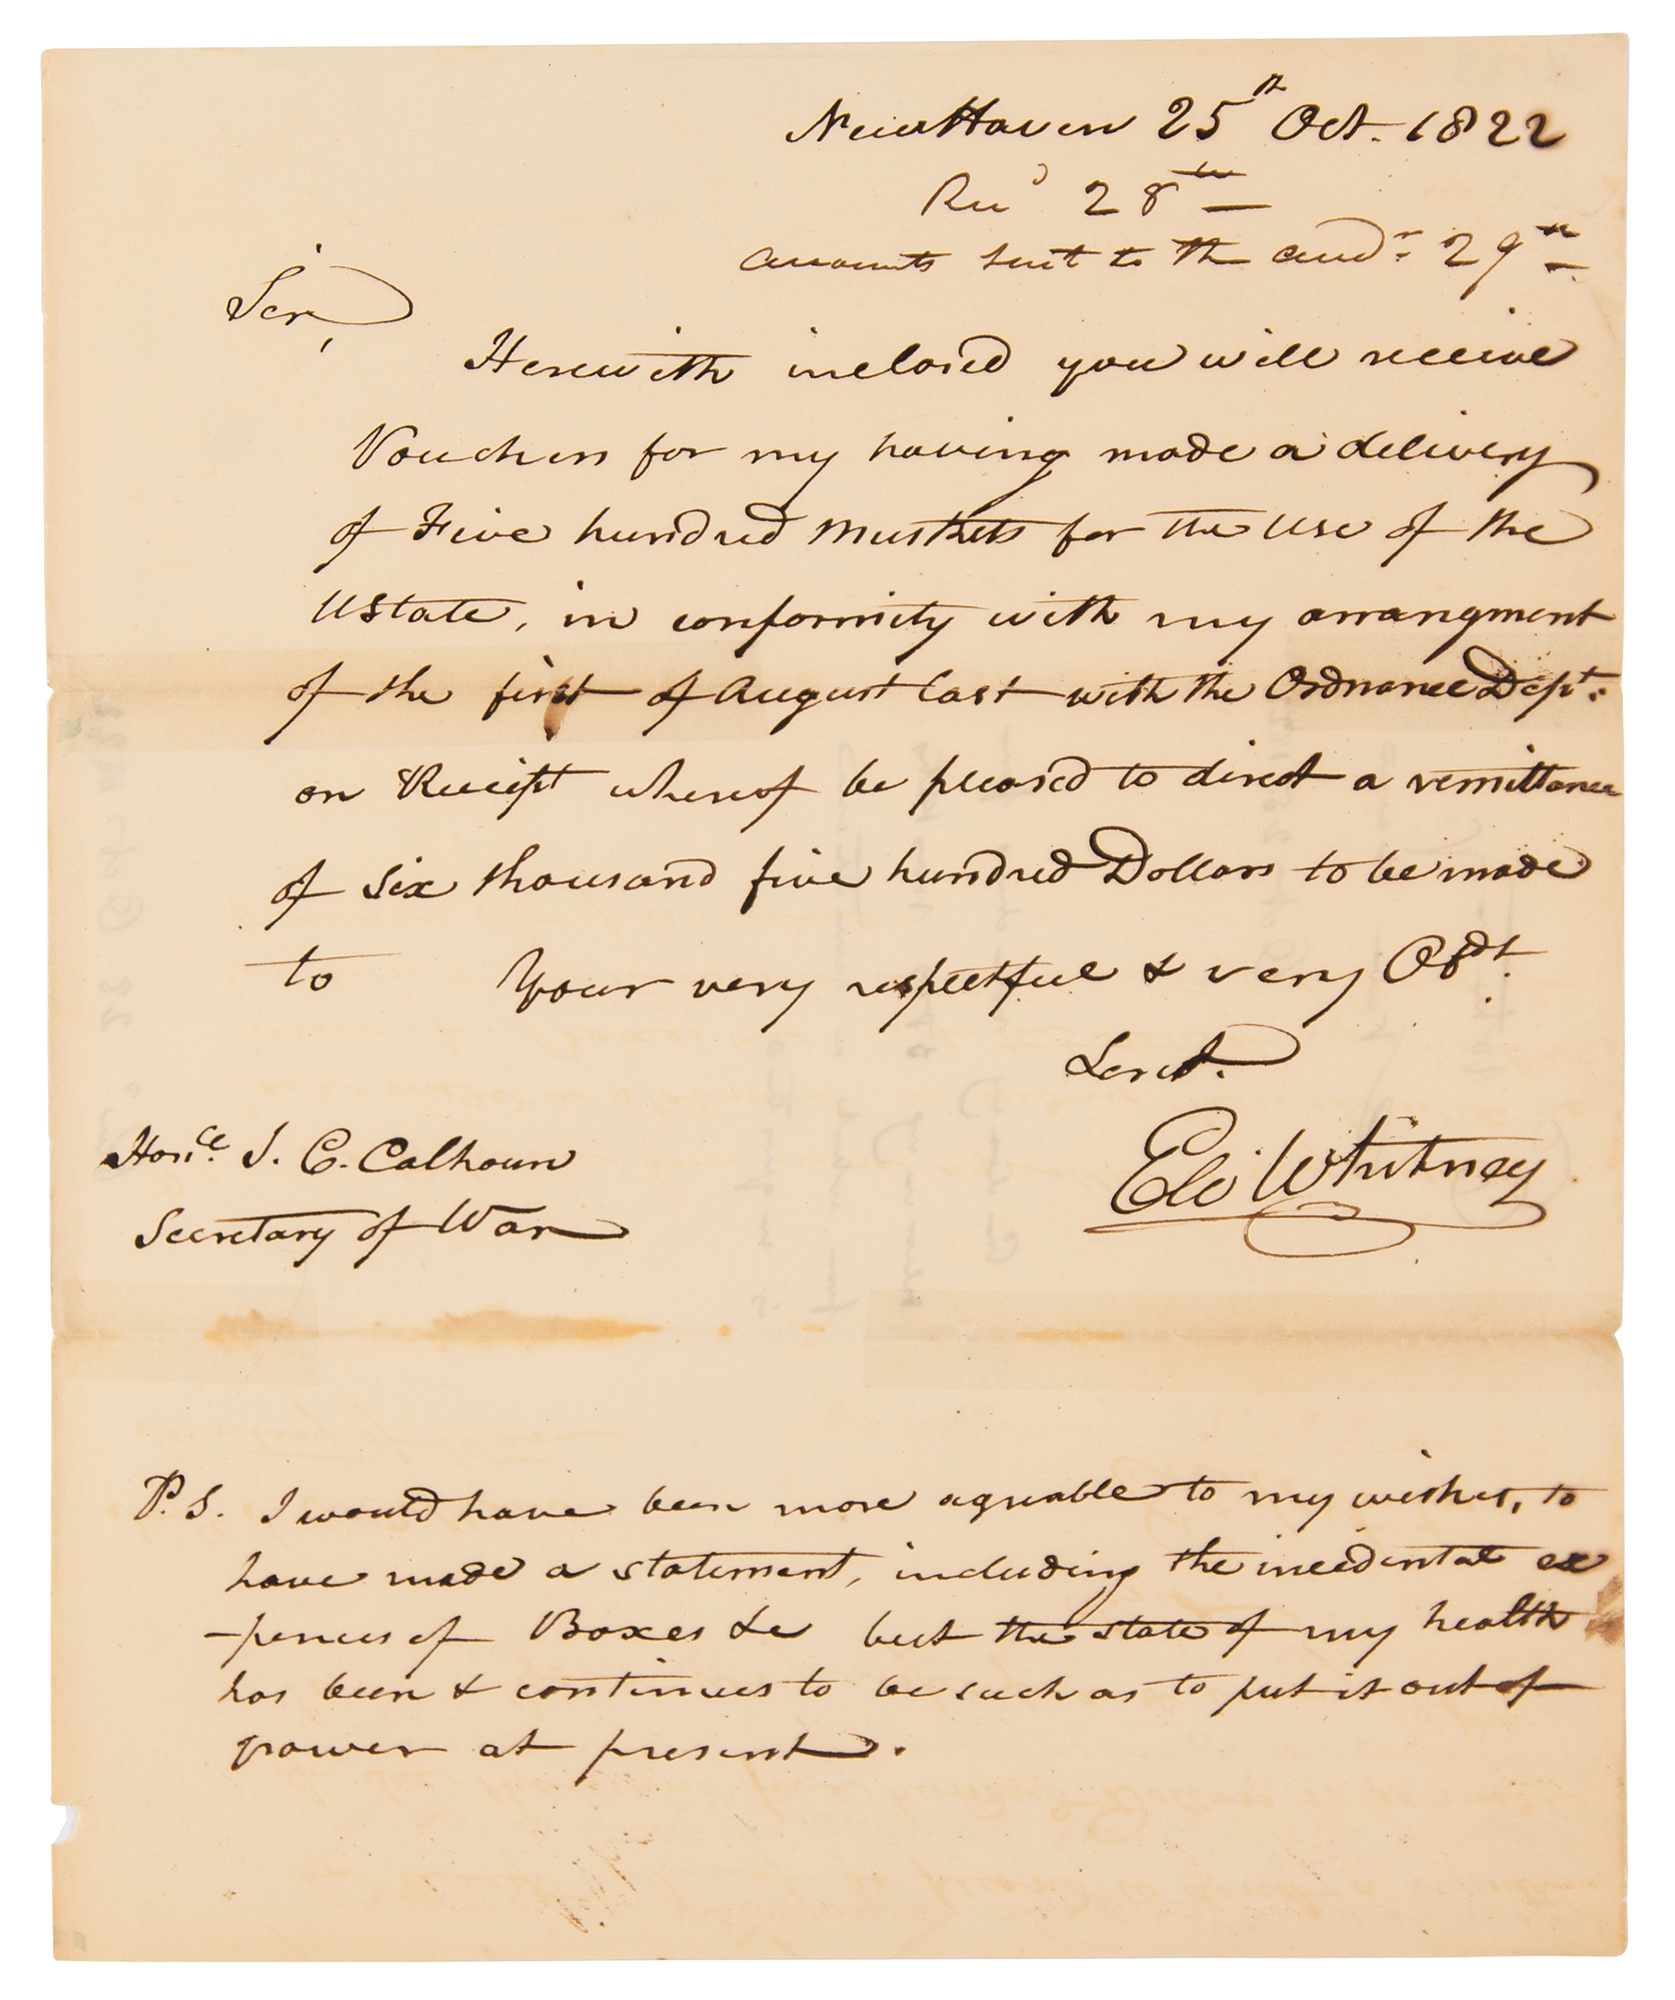 New Haven 25th Oct. 1822
Recd 28th
accounts sent to the audr. 29th
Sir,
Herewith inclosed you will receive
Vouchers for my having made a delivery
of Five hundred Muskets for the Use of the
UState, in conformity with my arrangment
of the first of August last with the Ordnance Dept.
on Receipt whereof be pleased to direct a remittance
of Six thousand five hundred Dollars to be made
to Your very respectful & very Obdt.
Servt.
Eli Whitney
Honle. J. C. Calhoun
Secretary of War
P.S. I would have been more agreable to my wishes, to
have made a statement, including the incidental ex
-pences of Boxes &c but the state of my health
has been & continues to be such as to put it out of
power at present.